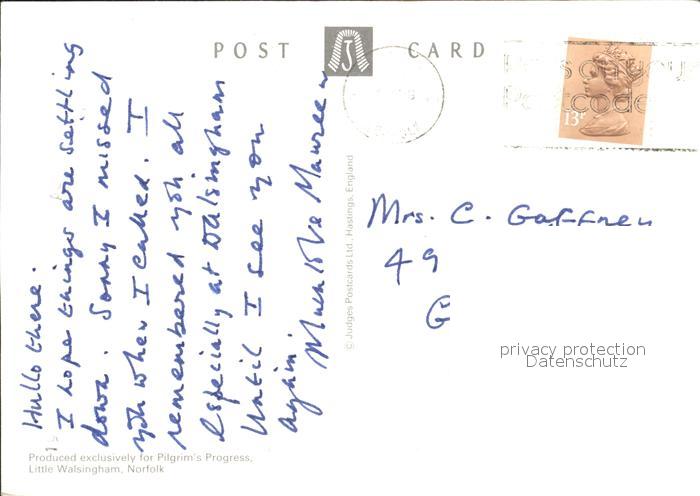 POST CARD
Hullo there.
I hope things are settling
down. Sorry I missed
you when I called. I
remembered you all
Especially at Walsingham
Until I see you
again.
Much love Maureen
Produced exclusively for Pilgrim's Progress,
Little Walsingham, Norfolk
© Judges Postcards Ltd., Hastings, England
Postcode
13P
Mrs. C. Gaffney
49
G
privacy protection
Datenschutz